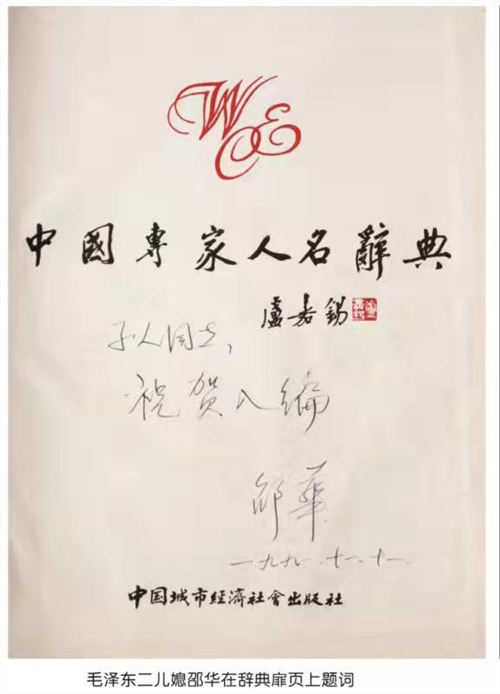 WCE
中國專家人名辭典
盧嘉錫
同志，
祝贺入编
邵華
一九九一.十一.十一.
中国城市經濟社會出版社
毛泽东二儿媳邵华在辞典扉页上题词